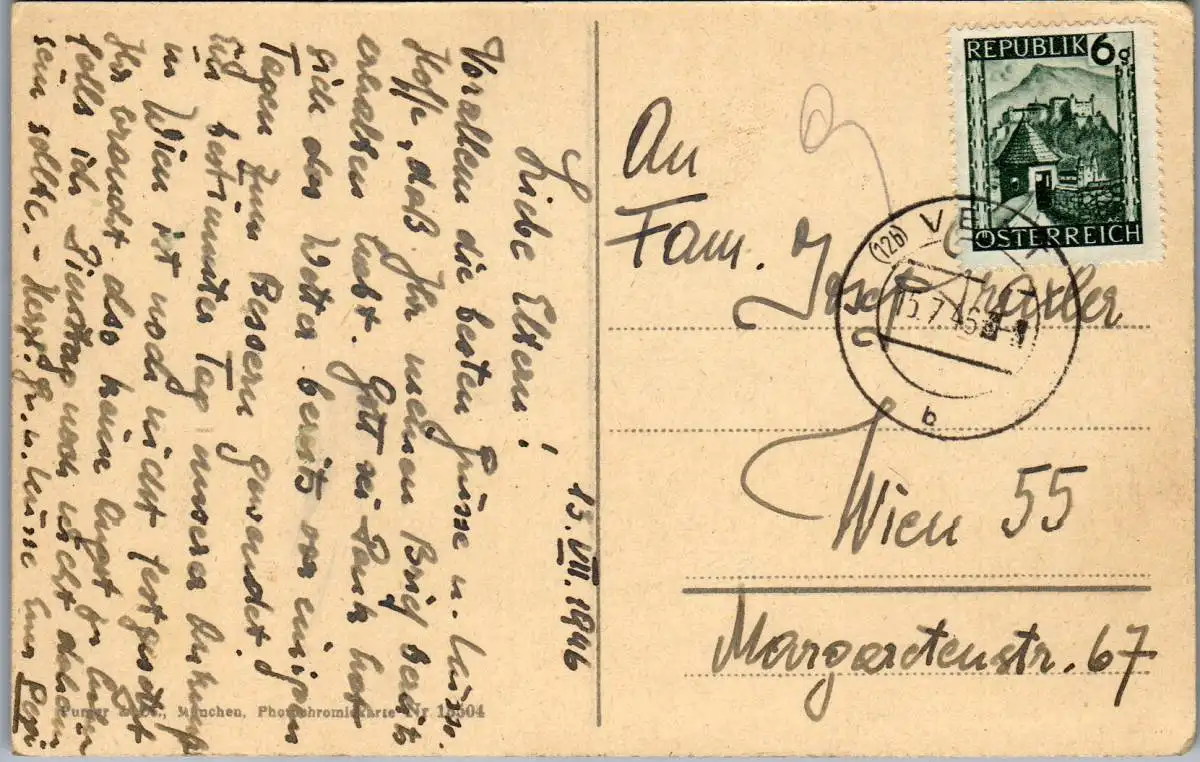 13. VII. 1946
Liebe Eltern!
Vorallem die besten Grüsse u. Küsse.
Hoffe, daß Ihr meinen Brief bereits
erhalten habt. Gott sei Dank hat
sich das Wetter bereits vor einigen
Tagen zum Bessern gewendet.
Ein bestimmter Tag unserer Ankunft
in Wien ist noch nicht festgesetzt
Ihr braucht also keine Angst zu haben
falls ich Dienstag noch nicht daheim
sein sollte. - Herzl. Gr. u. Küsse Eure Pepi
REPUBLIK 6g
ÖSTERREICH
(12b)
15.7.46
b
An
Fam. Josef
Wien 55
Margaretenstr. 67
Purger & Co., München, Photochromiekarte Nr